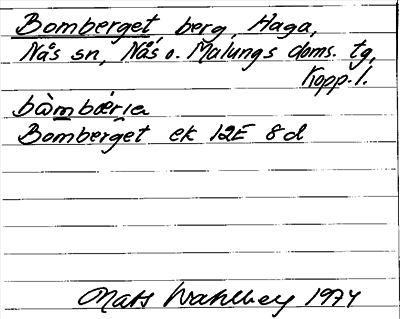 Bomberget, berg, Haga,
Nås sn, Nås o. Malungs doms. tg,
Kopp. l.
bàmbǽrıa
Bomberget ek 12E 8d
Mats Wahlberg 1974